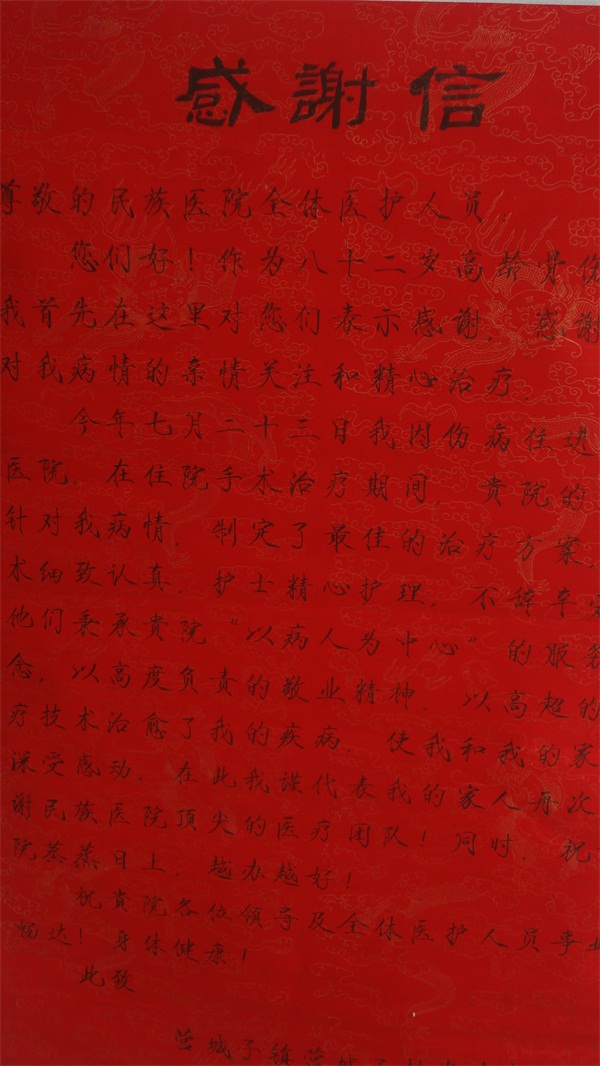 感謝信
尊敬的民族医院全体医护人员：
您们好！作为八十二岁高龄骨伤
我首先在这里对您们表示感谢，感谢
对我病情的亲情关注和精心治疗，
今年七月二十三日我因伤病住进
医院，在住院手术治疗期间，贵院的
针对我病情，制定了最佳的治疗方案，
术细致认真，护士精心护理，不辞辛
他们秉承貴院“以病人为中心”的服务
念，以高度负责的敬业精神，以高超的
疗技术治愈了我的疾病，使我和我的家
深受感动，在此我谨代表我的家人再次
谢民族医院顶尖的医疗团队！同时，祝
院蒸蒸日上，越办越好！
祝貴院各位领导及全体医护人员事业
畅达！身体健康！
此致
营城子镇营城子村